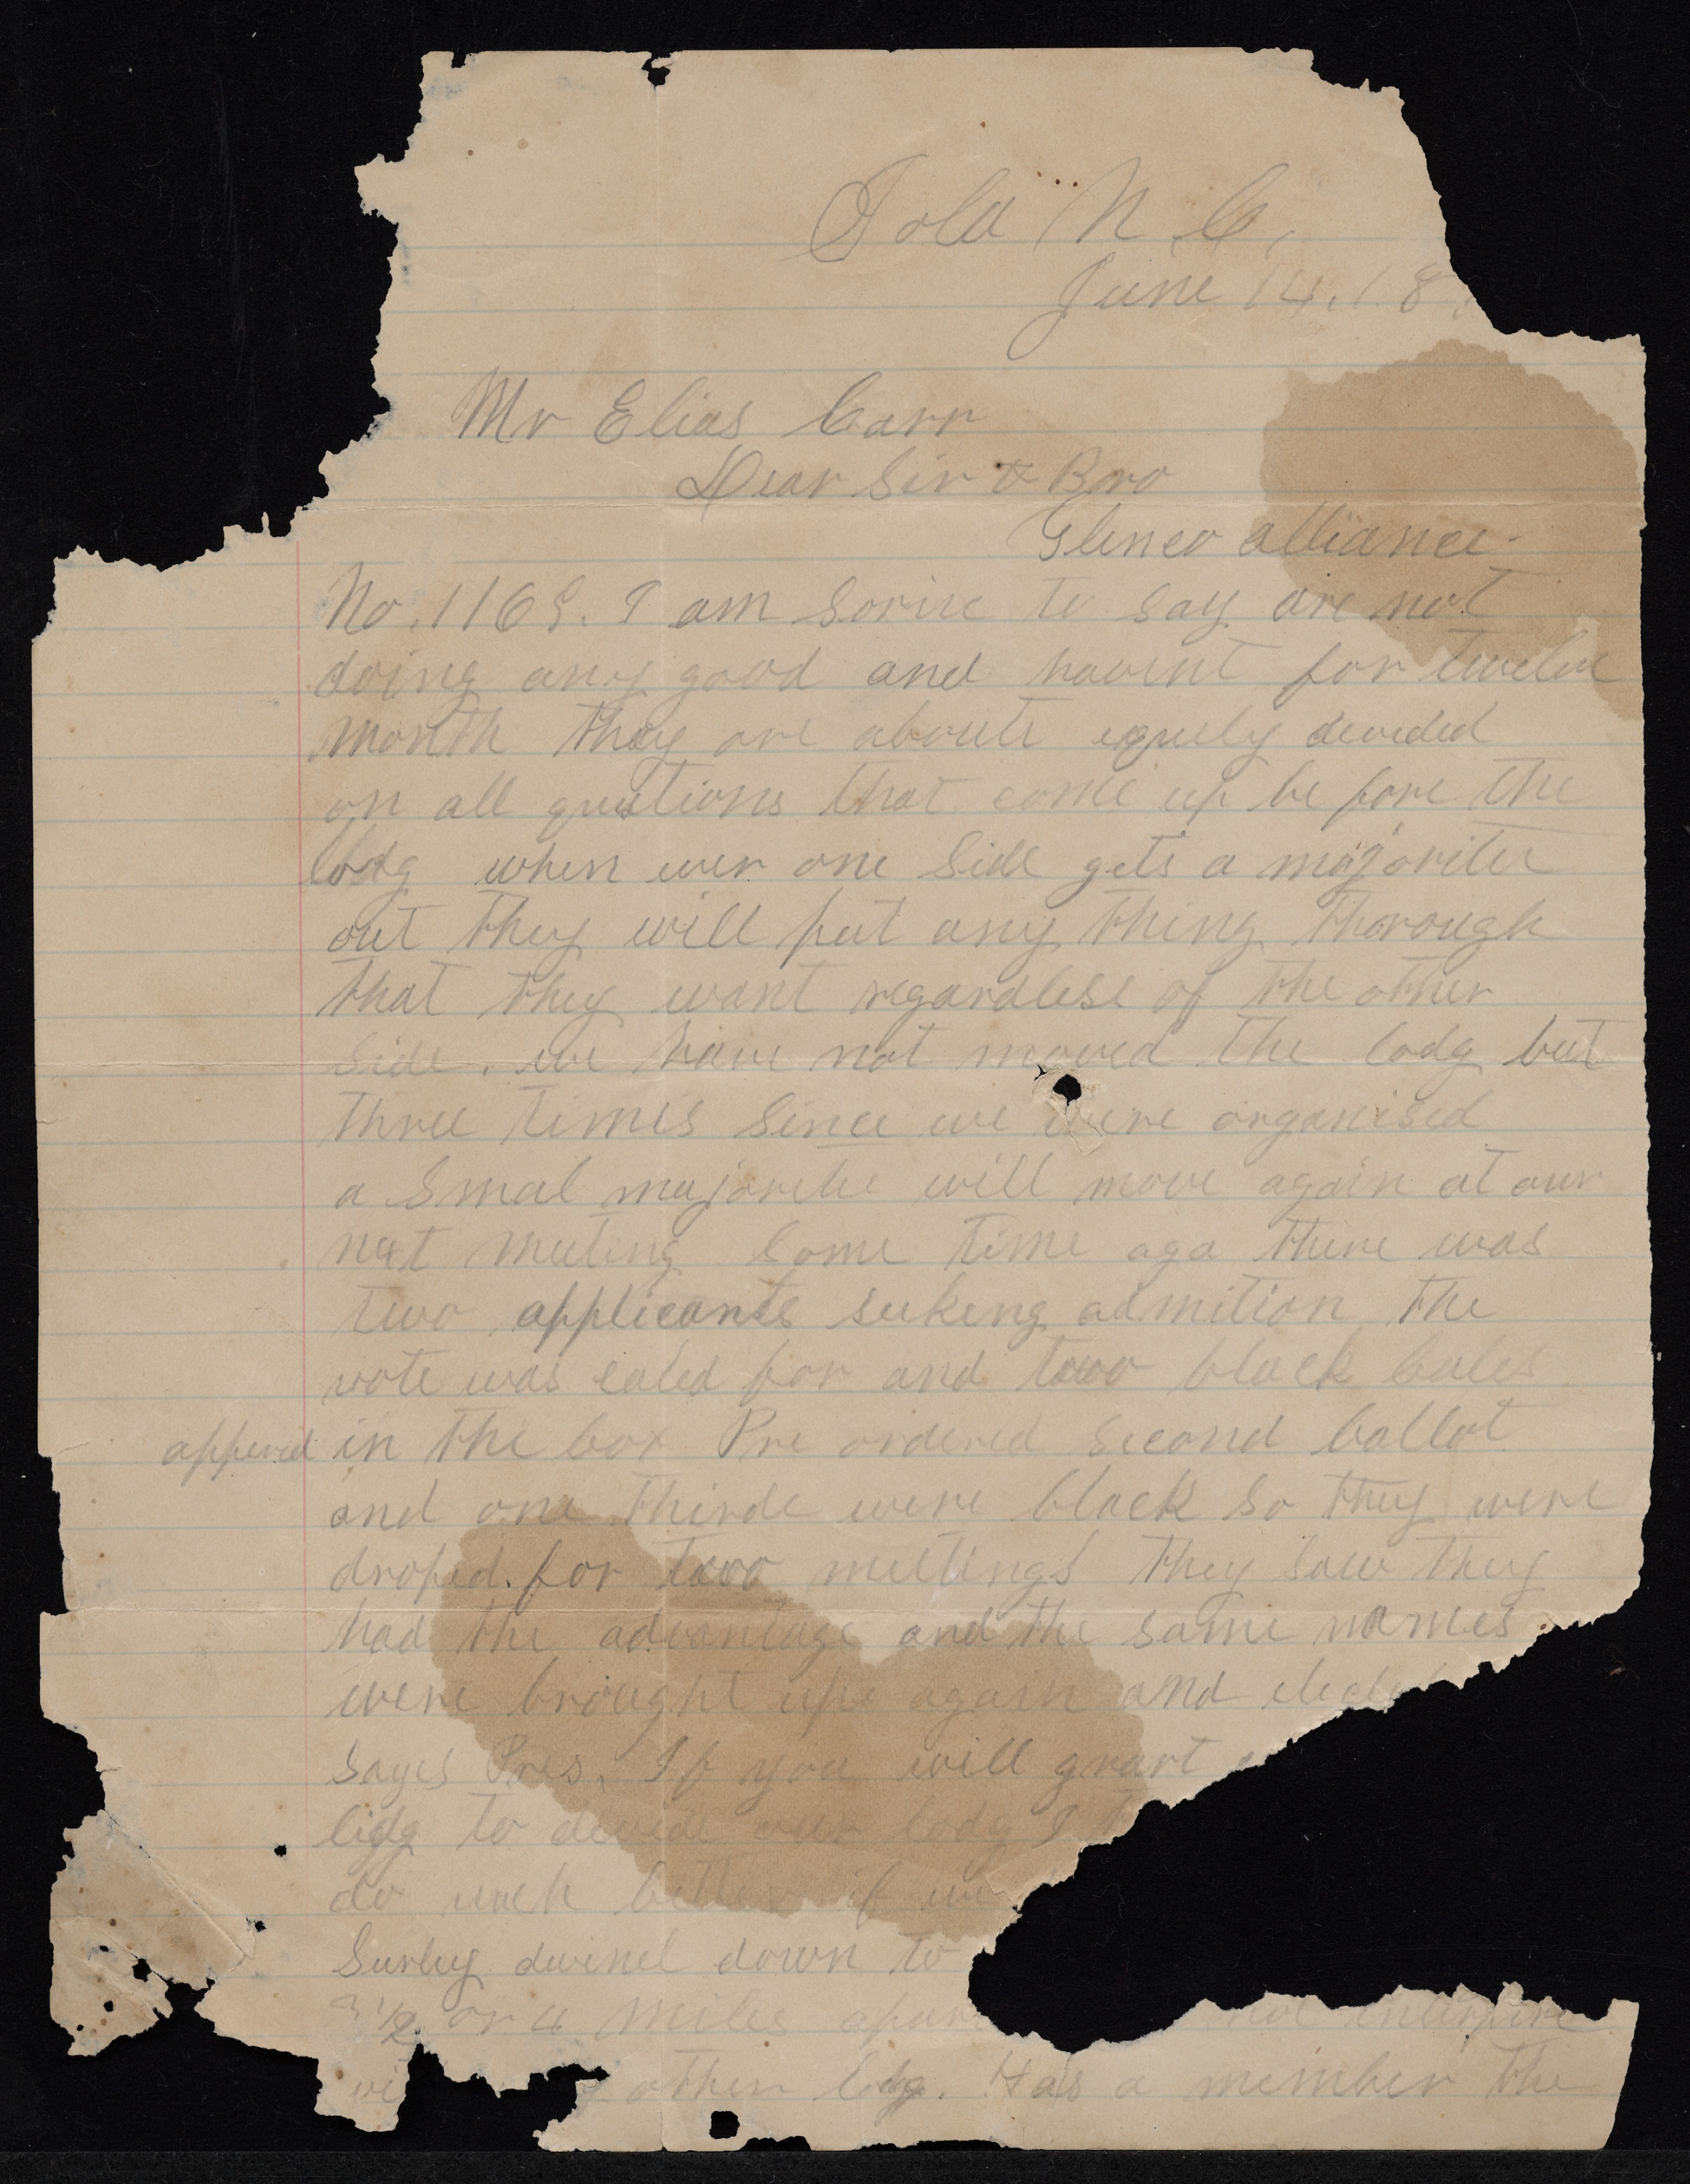 Tola N. C,
June 14. 18
Mr Elias Carr
Dear Sir & Bro
Glenco alliance
No. 1169. I am sorrie to say are not
doing any good and havent for twelve
month they are aboute equely devided
on all questions that come up be fore the
lodg when ever one side gets a majoritee
out they will put any thing thorough
that they want regardlese of the other
side. we have not moved the lodg but
three times since we were organised
a smal majorite will move again at our
next meeting some time ago there was
two applicants seeking admition the
vote was caled for and two black bales
appered in the box Pre ordered second ballot
and one thirde were black so they were
droped. for two meetings they saw they
had the advantage and the same names
were brought up again and
sayes Pres. If you will grant
lidg to devide our lodg I
do much better if we
Surley dwinel down to
3 1/2 or 4 miles apart not
other lodg. Has a member the